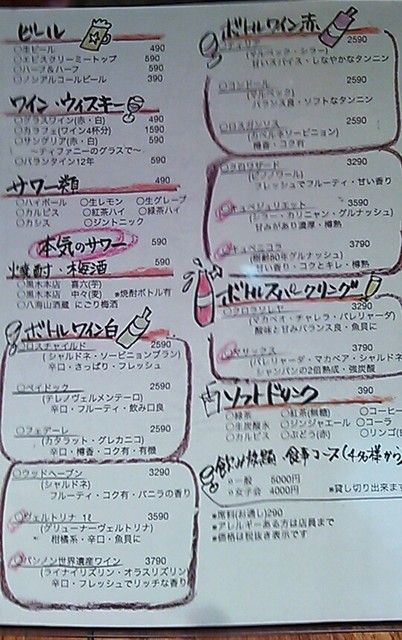 ビール
○生ビール 490
○エビスクリーミートップ 590
○ハーフ&ハーフ 590
○ノンアルコールビール 390
ワイン・ウィスキー
○グラスワイン(赤・白) 490
○カラフェ(ワイン4杯分) 1590
○サングリア(赤・白) 590
～ティファニーのグラスで～
○バランタイン12年 590
サワー類 490
○ハイボール ○生レモン ○生グレープ
○カルピス ○紅茶ハイ ○緑茶ハイ
○カシス ○ジントニック
本気のサワー 590
焼酎・梅酒 590
○黒木本店 喜六(芋)
○黒木本店 中々(麦) *焼酎ボトル有
○八海山酒蔵 にごり梅酒
ボトルワイン白
○ロスチャイルド 2590
(シャルドネ・ソービニョンブラン)
辛口・さっぱり・フレッシュ
○ペイドック 2590
(テレノヴェルメンテーロ)
辛口・フルーティ・飲み口良
○フェアーレ 2590
(カタラット・グレカニコ)
辛口・樽香・コク有・有機
○ウッドヘーブン 3290
(シャルドネ)
フルーティ・コク有・バニラの香り
○ヴェルトリナ 1ℓ 3590
(グリューナーヴェルトリナ)
柑橘系・辛口・魚貝に
○パンノン世界遺産ワイン 3790
(ライナイリズリン・オラスリズリン)
辛口・フレッシュでリッチな香り
ボトルワイン赤
2590
(マルベック・シラー)
甘いスパイス・しなやかなタンニン
○コンドール 2590
(マルベック)
バランス良・ソフトなタンニン
○ロスガンソス 2590
(カベルネソービニョン)
樽香・コク有
3290
(ピノノワール)
フレッシュでフルーティ・甘い香り
○キュベジュリエット 3590
(シラー・カリニャン・グルナッシュ)
甘みがあり濃厚・樽熟
○キュベニコラ 3790
(樹齢80年グルナッシュ)
甘い香り・コクとキレ・樽熟
ボトルスパークリング
○クロラソレヤ 3290
(マカベオ・チャレラ・パレリャーダ)
酸味と甘みバランス良・魚貝に
3790
(パレリャーダ・マカベア・シャルドネ
シャンパンの2倍熟成・強炭酸
ソフトドリンク 390
○緑茶 ○紅茶(無糖) ○コーヒー
○生炭酸水 ○ジンジャエール ○コーラ
○カルピス ○ぶどう(赤) ○リンゴ(
飲み放題・食事コース(4名様から)
○一般 5000円
○女子会 4000円 *貸し切り出来ます
*席料(お通し)290
*アレルギーある方は店員まで
*価格は税抜き表示です